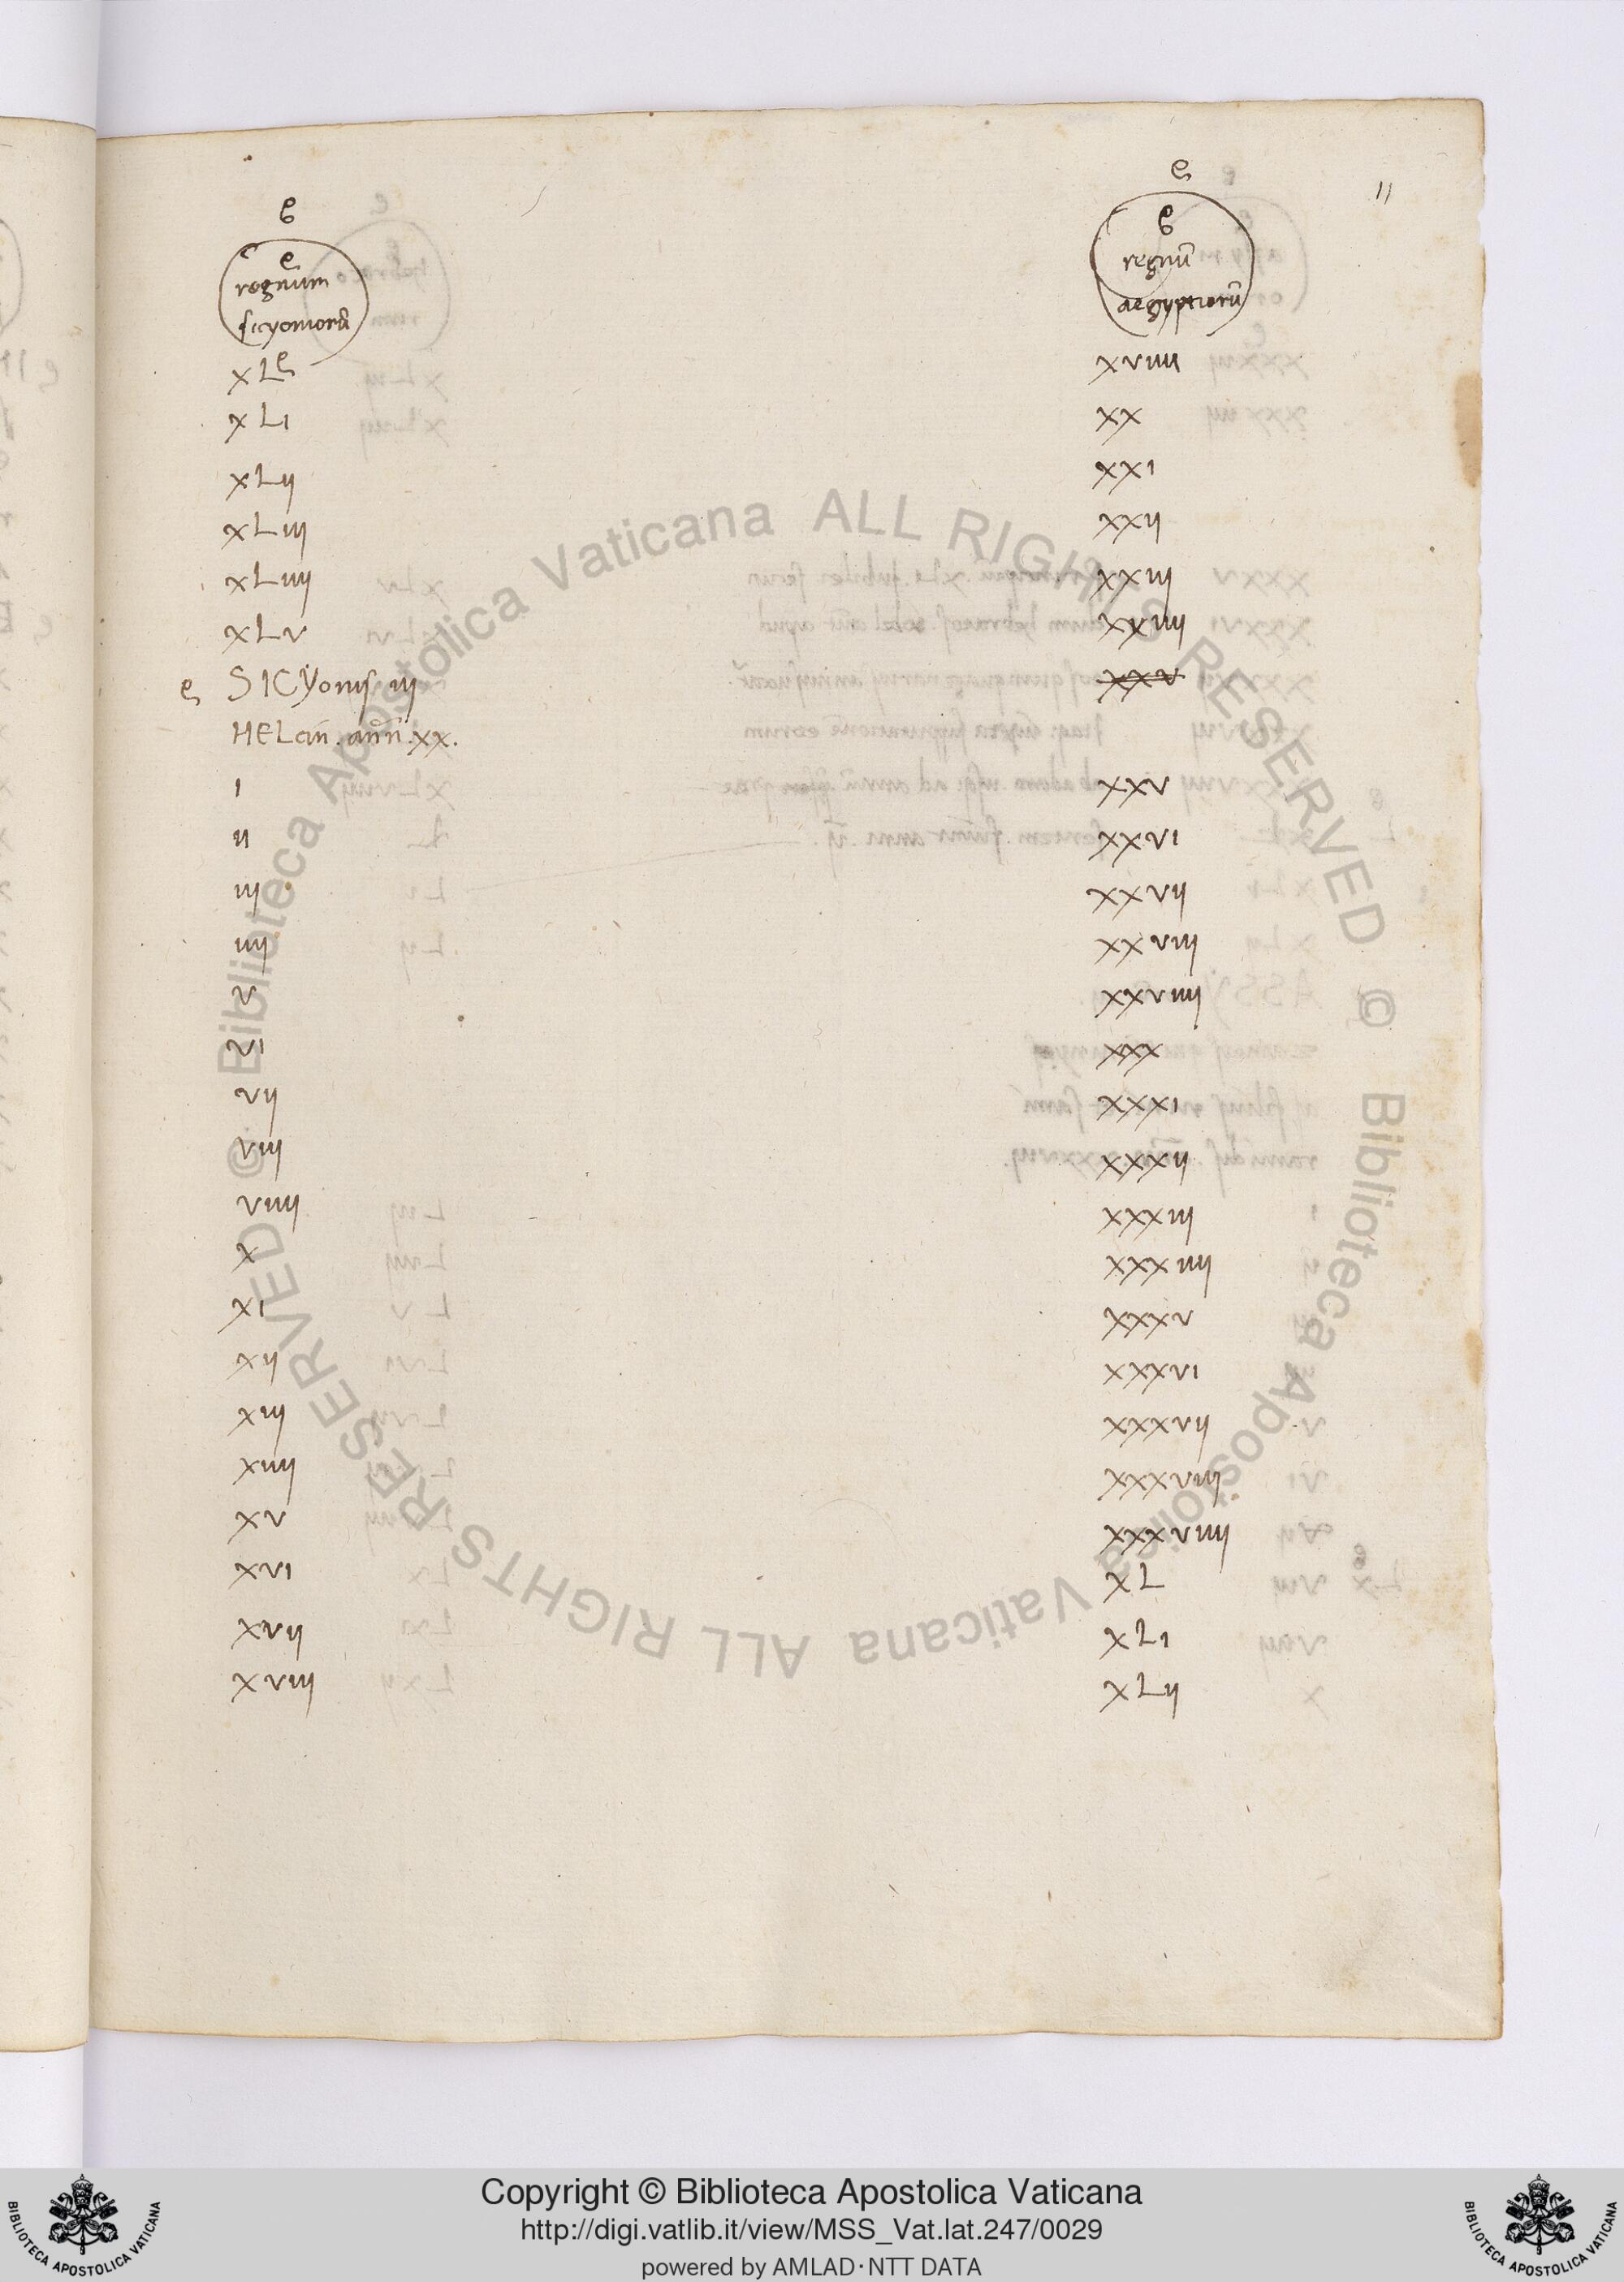 11
regnum
sicyoniorū
xL
xLi
xLii
xLiii
xLiiii
xLv
SICYonis iii
HELcin. ann̄. xx.
i
ii
iii
iiii
v
vi
vii
viii
viiii
x
xi
xii
xiii
xiiii
xv
xvi
xvii
xviii
regnū
aegyptiorū
xviiii
xx
xxi
xxii
xxiii
xxiiii
xxv
xxv
xxvi
xxvii
xxviii
xxviiii
xxx
xxxi
xxxii
xxxiii
xxxiiii
xxxv
xxxvi
xxxvii
xxxviii
xxxviiii
xL
xLi
xLii
© Biblioteca Apostolica Vaticana ALL RIGHTS RESERVED
© Biblioteca Apostolica Vaticana ALL RIGHTS RESERVED
Copyright © Biblioteca Apostolica Vaticana
http://digi.vatlib.it/view/MSS_Vat.lat.247/0029
powered by AMLAD·NTT DATA
BIBLIOTECA APOSTOLICA VATICANA
BIBLIOTECA APOSTOLICA VATICANA